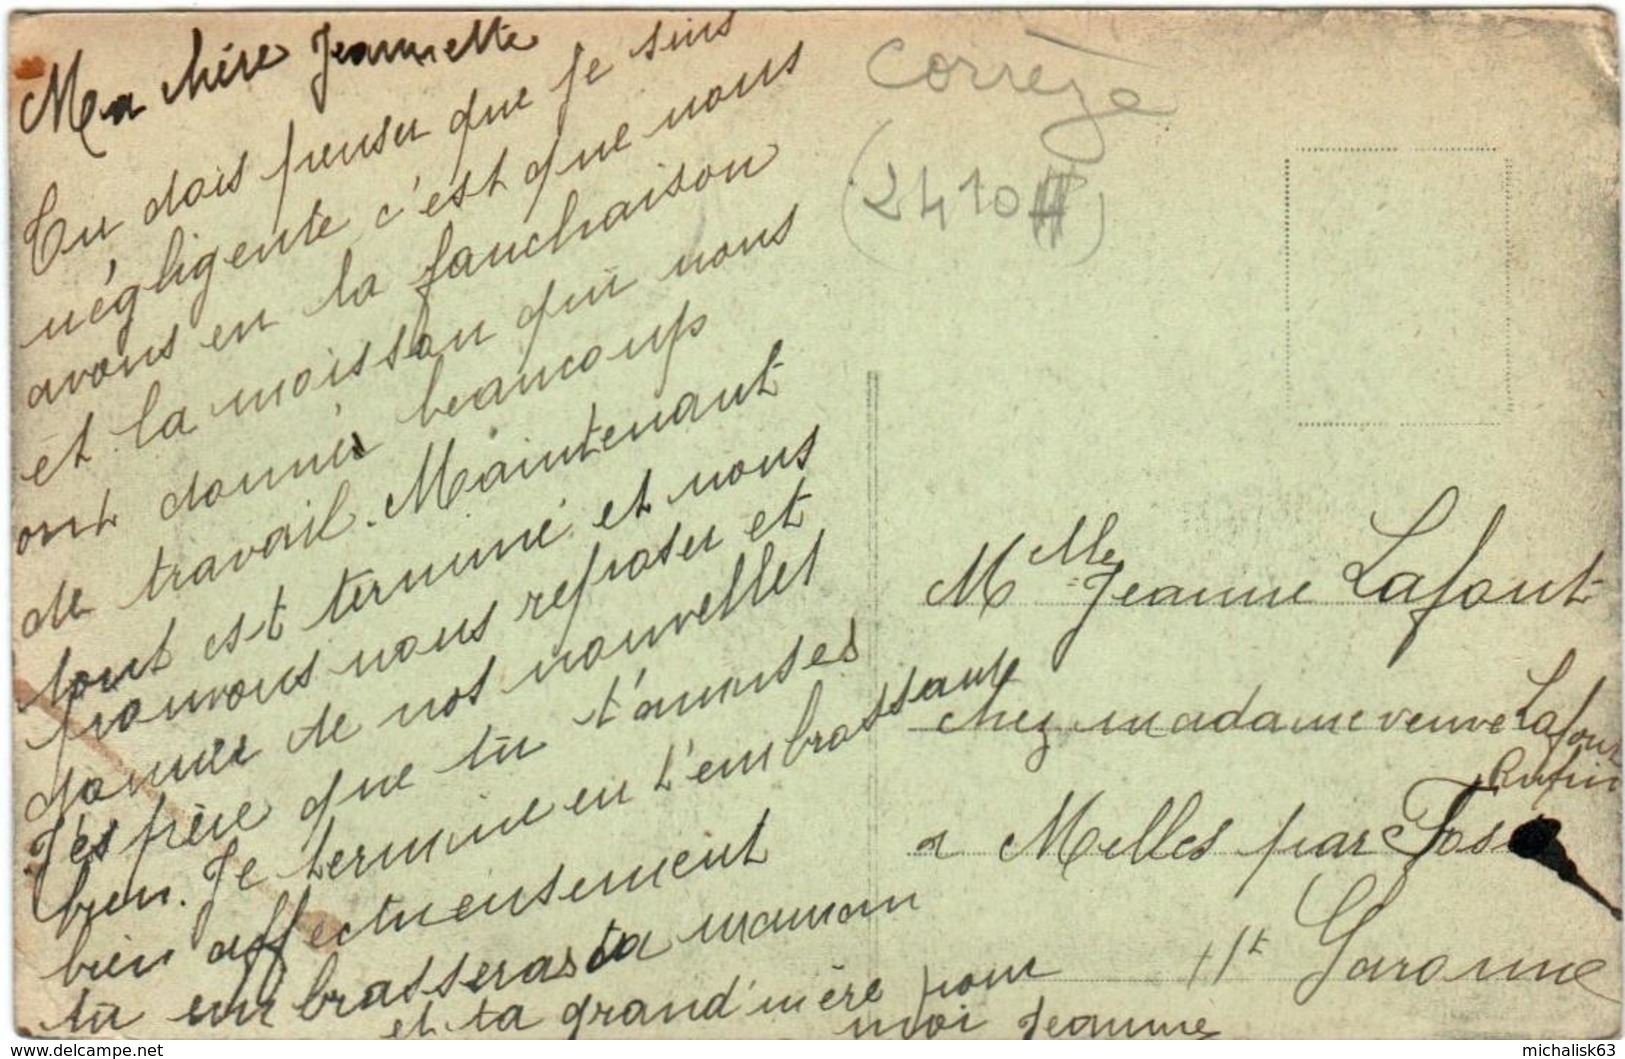 Ma chère Jeannette
Tu dois penser que je suis
négligente c'est que nous
avons eu la fauchaison
et la moisson qui nous
ont donner beaucoups
de travail. Maintenant
tout est terminé et nous
pouvons nous reposer et
donner de nos nouvelles
J'espère que tu t'amuses
bien. Je termine en t'embrassant
bien affectueusement
tu embrasseras ta maman
et ta grand'mère pour
moi Jeanne
Corrèze
(2410)
Melle Jeanne Lafont
chez madame veuve Lafont
à Melles par Fos
Hte Garonne
michalisk63
www.delcampe.net